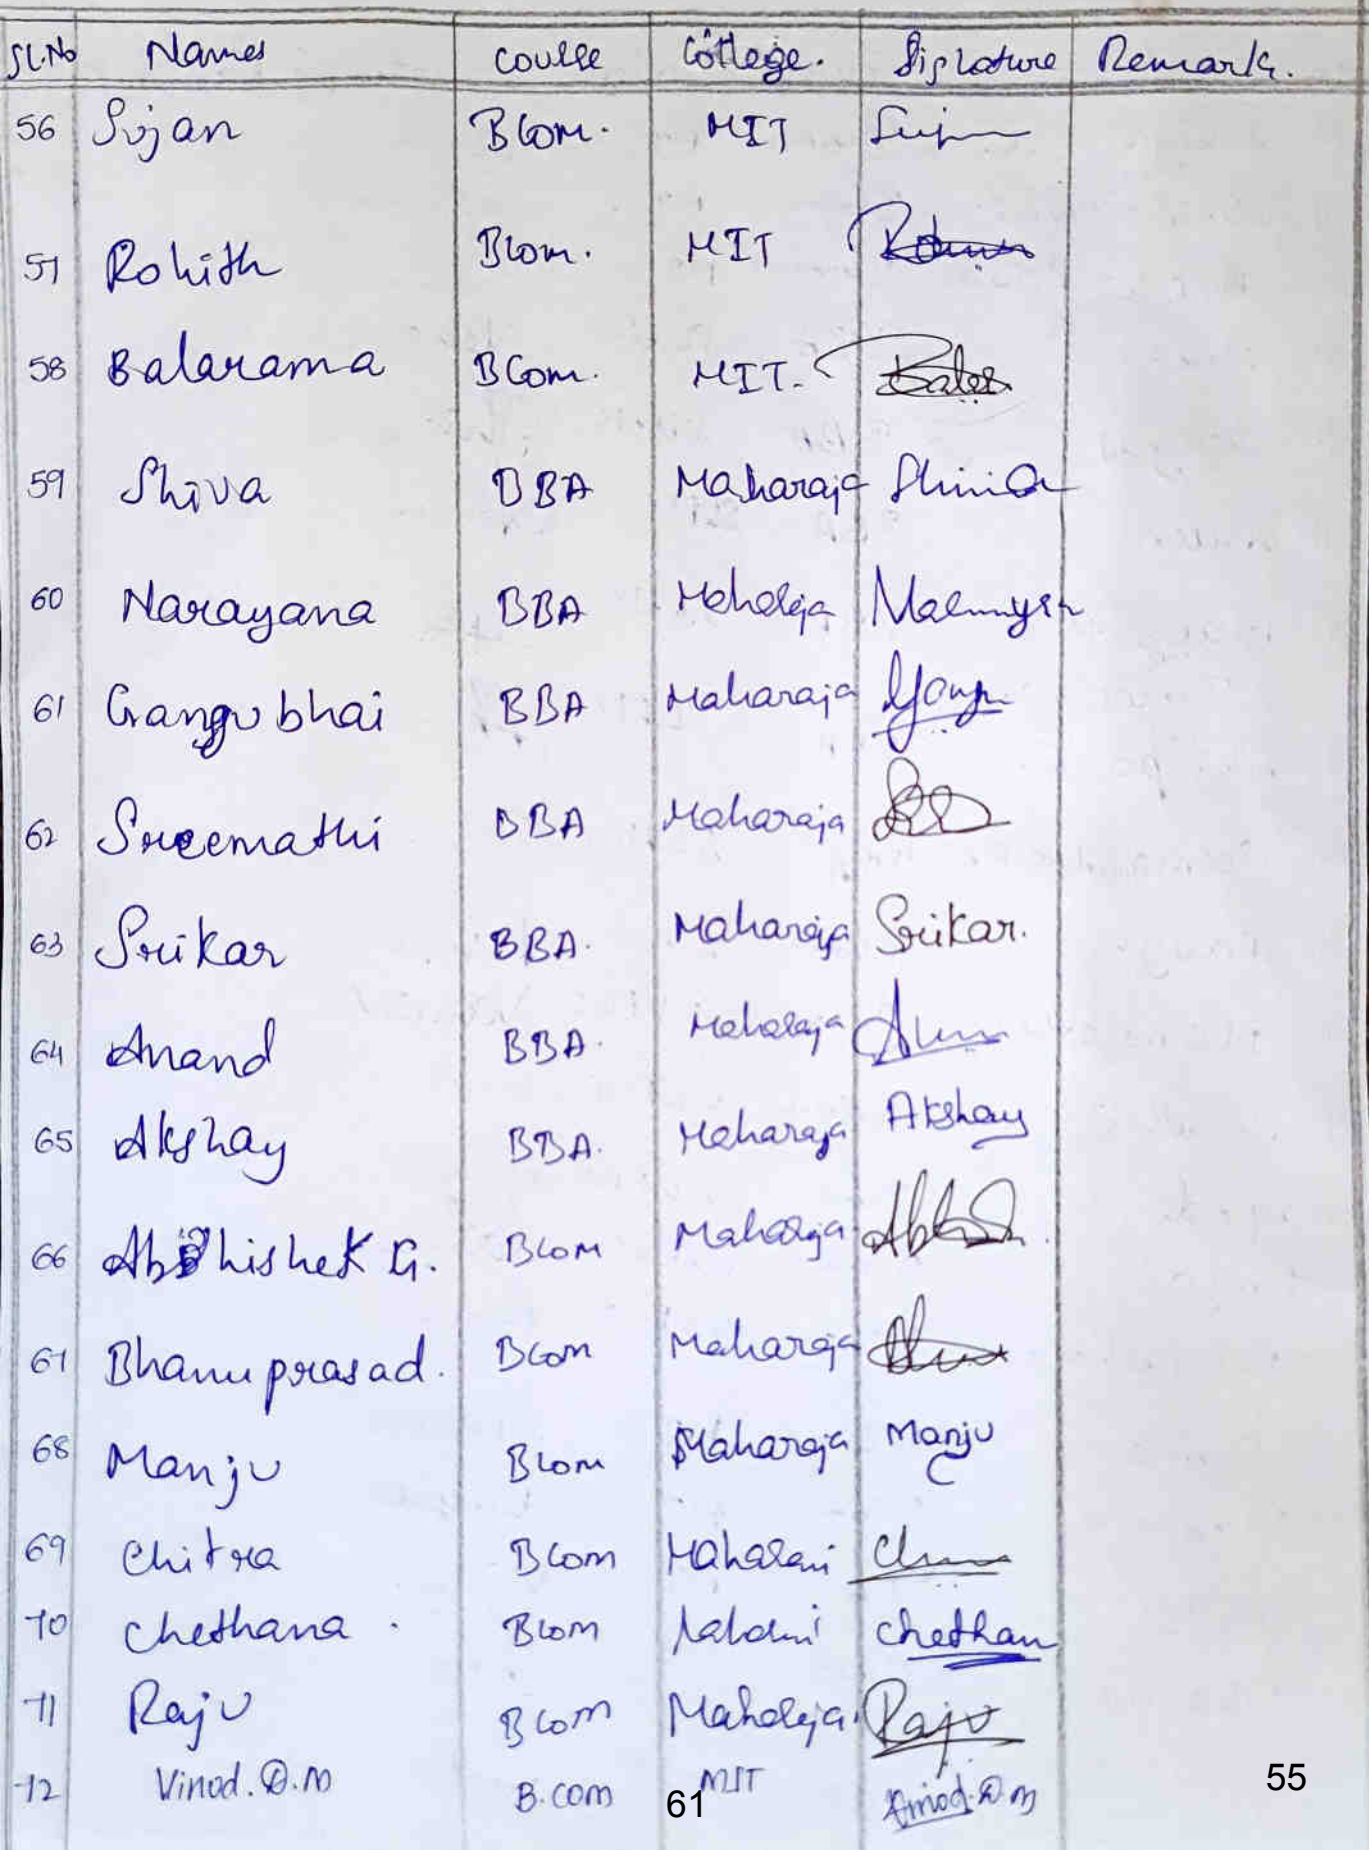 Sl.No Names Course College. Signature Remark.
56 Sujan BCom. MIT Suj
57 Rohith BCom. MIT
58 Balarama BCom. MIT.
59 Shiva BBA Maharaja Shiva
60 Narayana BBA Maharaja
61 Gangubhai BBA Maharaja
62 Sreemathi BBA Maharaja
63 Srikar BBA. Maharaja Srikar.
64 Anand BBA. Maharaja
65 Akshay BBA. Maharaja Akshay
66 Abhishek G. BCom Maharaja
67 Bhanuprasad. BCom Maharaja
68 Manju BCom Maharaja Manju
69 Chitra BCom Maharani
70 Chethana. BCom Chethan
71 Raju BCom Maharaja. Raju
72 Vinod.D.M B.Com MIT Vinod.D.M
61
55